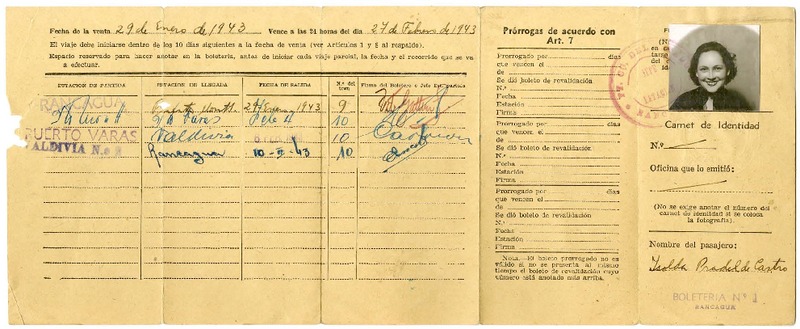 Fecha de la venta 29 de Enero de 1943 Vence a las 24 horas del día 27 de Febrero de 1943
El viaje debe iniciarse dentro de los 10 días siguientes a la fecha de venta (ver Artículos 1 y 8 al respaldo).
Espacio reservado para hacer anotar en la boletería, antes de iniciar cada viaje parcial, la fecha y el recorrido que se va
a efectuar.
ESTACION DE PARTIDA ESTACION DE LLEGADA FECHA DE SALIDA N.º del tren Firma del Boletero o Jefe Est. partida
RANCAGUA 1943 9
10
PUERTO VARAS Valdivia 10
VALDIVIA N.º Rancagua 10-II-43 10
Prórrogas de acuerdo con
Art. 7
Prorrogado por días
que vencen el
de de
Se dió boleto de revalidación
N.º
Fecha
Estación
Firma
Prorrogado por días
que vencen el
de de
Se dió boleto de revalidación
N.º
Fecha
Estación
Firma
Prorrogado por días
que vencen el
de de
Se dió boleto de revalidación
N.º
Fecha
Estación
Firma
NOTA. El boleto prorrogado no es
válido si no se presenta al mismo
tiempo el boleto de revalidación cuyo
número está anotado más arriba.
Carnet de Identidad
N.º
Oficina que lo emitió:
(No se exige anotar el número del
carnet de identidad si se coloca
la fotografía).
Nombre del pasajero:
Isolda Pradel de Castro
BOLETERIA Nº 1
RANCAGUA